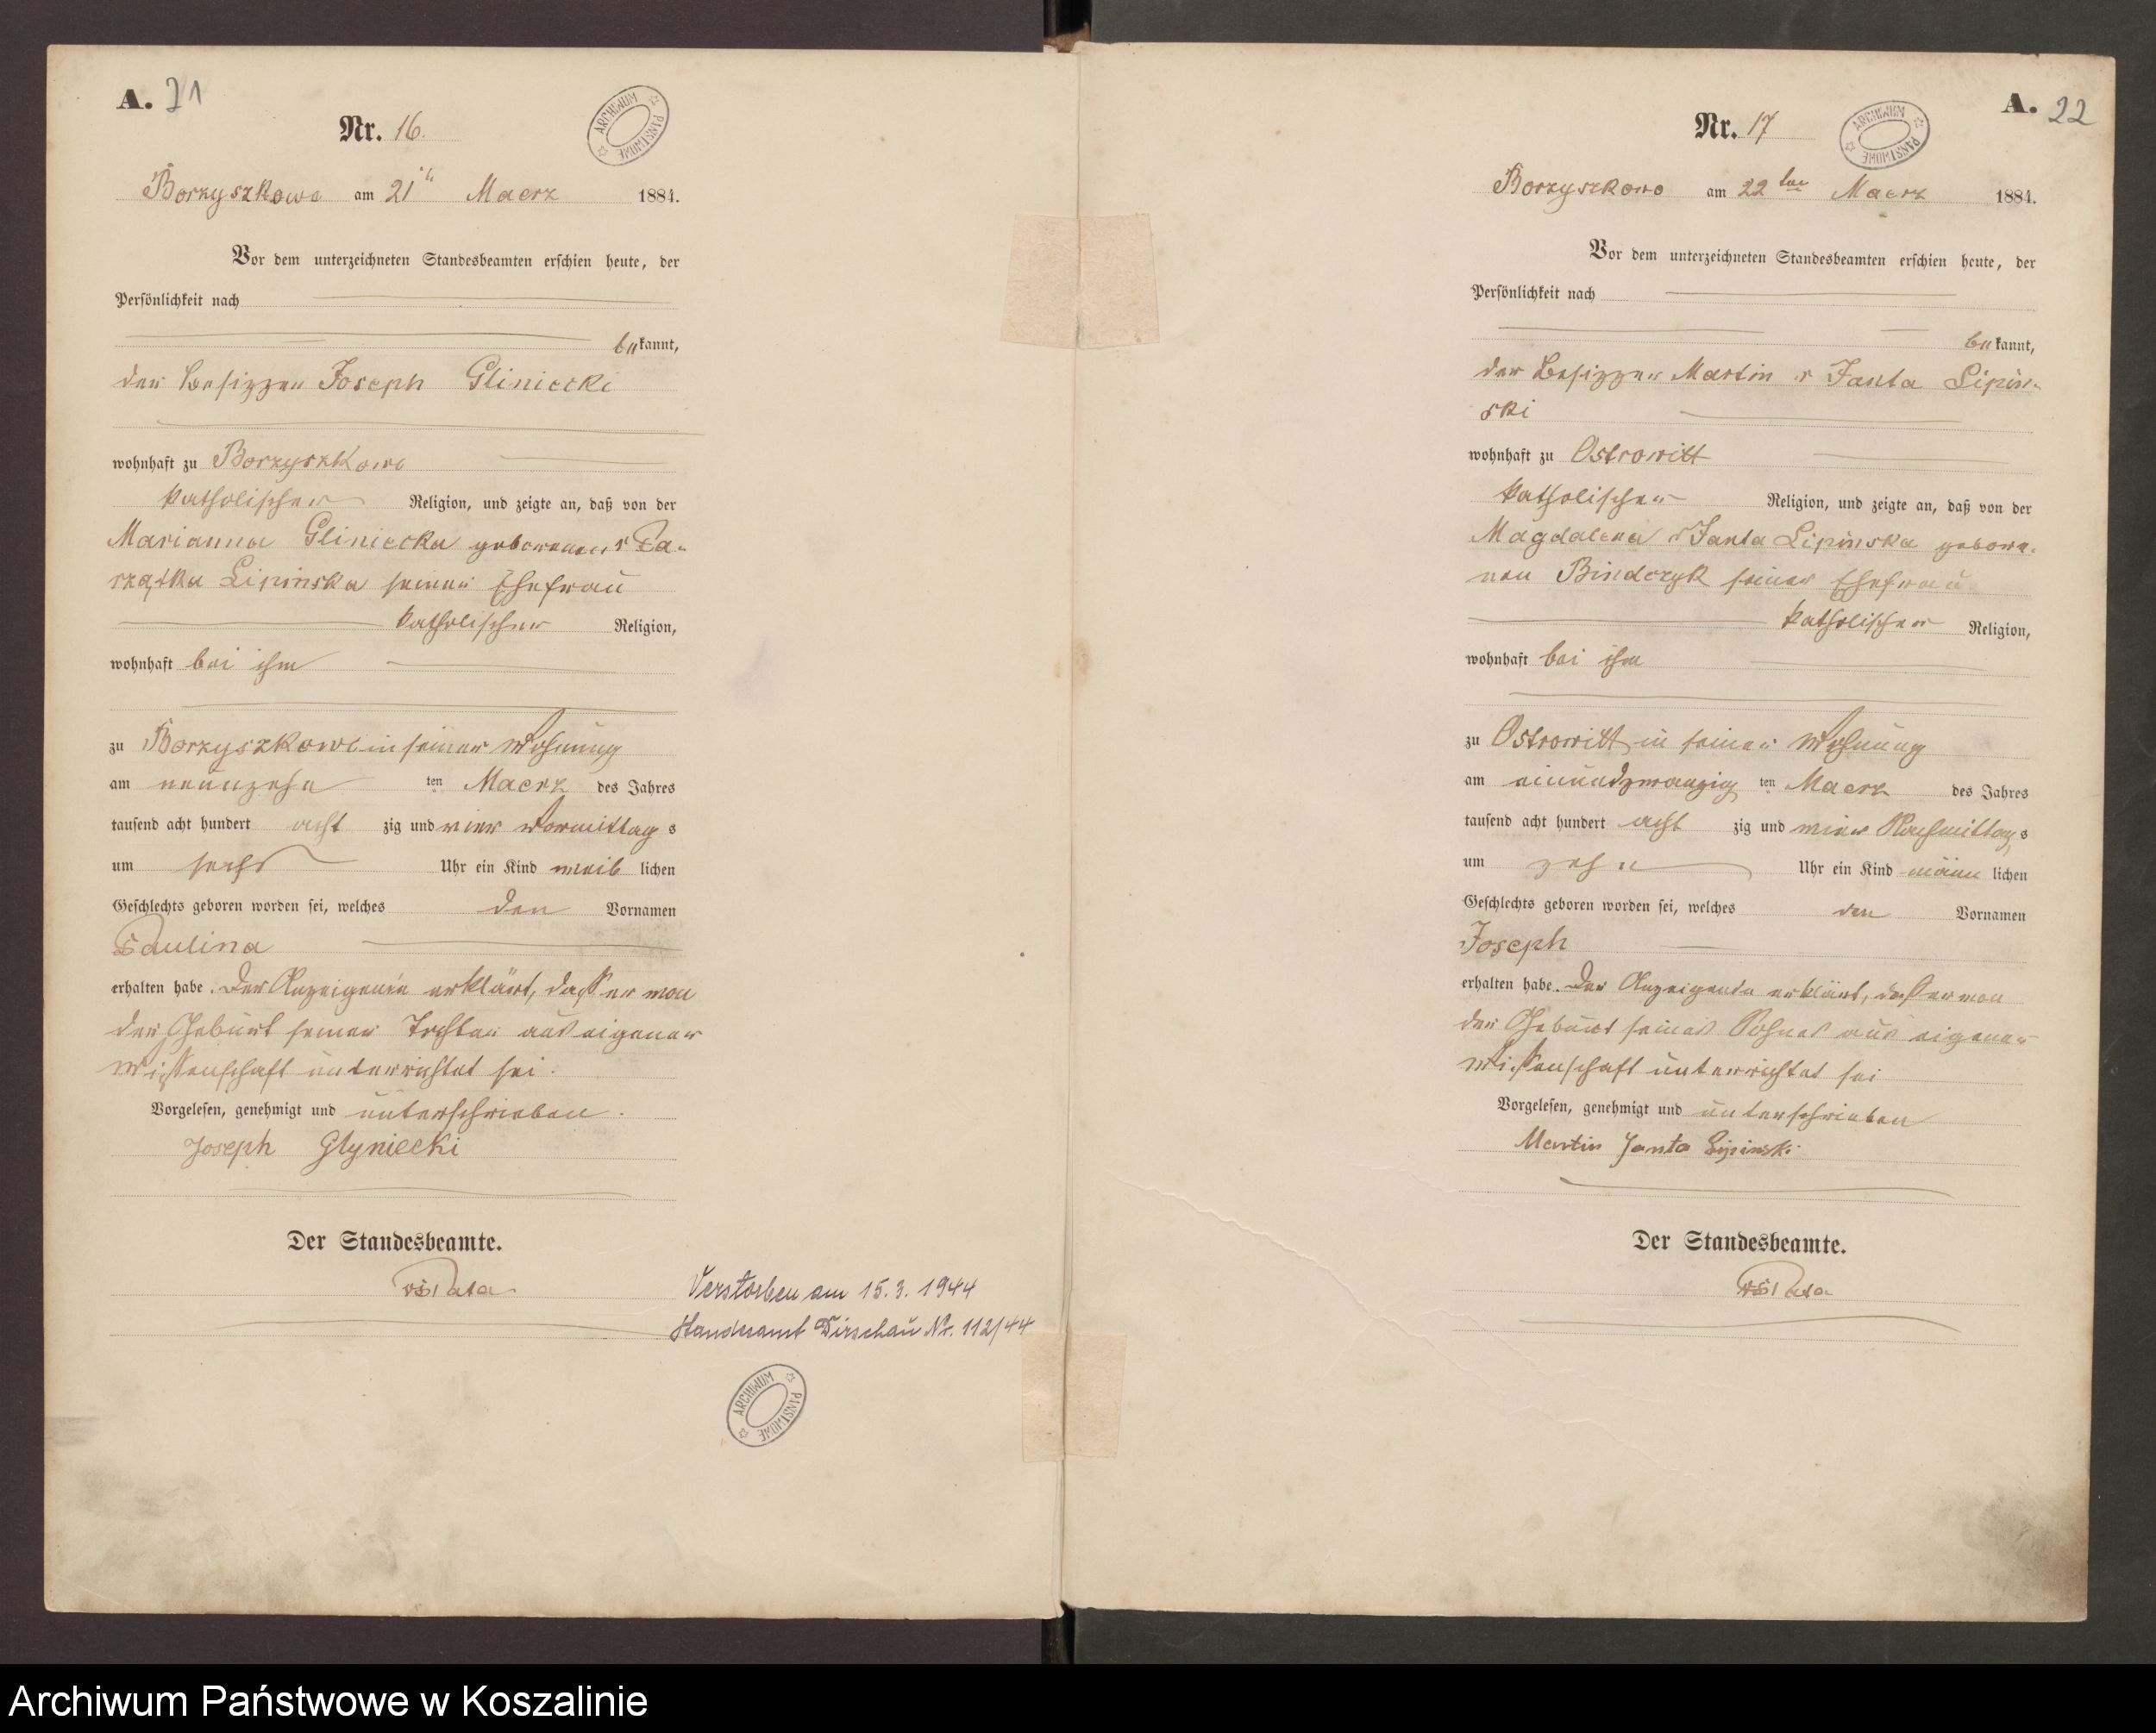 A. 21
Nr. 16.
ARCHIWUM PAŃSTWOWE
Borzyszkowo am 21ten Maerz 1884.
Vor dem unterzeichneten Standesbeamten erschien heute, der
Persönlichkeit nach
bekannt,
der Besizzer Joseph Gliniecki
wohnhaft zu Borzyszkowo
katholischer Religion, und zeigte an, daß von der
Marianna Gliniecka geborenen
Lipinska seiner Ehefrau
katholischer Religion,
wohnhaft bei ihm
zu Borzyszkowo in seiner Wohnung
am neunzehn ten Maerz des Jahres
tausend acht hundert acht zig und vier Vormittag s
um sechs Uhr ein Kind weib lichen
Geschlechts geboren worden sei, welches den Vornamen
Paulina
erhalten habe. Der Anzeigende erklärt, dass er von
der Geburt seiner Tochter aus eigener
Wissenschaft unterrichtet sei.
Vorgelesen, genehmigt und unterschrieben.
Joseph Glyniecki
Der Standesbeamte.
Verstorben am 15.3.1944
Standesamt Dirschau Nr. 112/44
ARCHIWUM PAŃSTWOWE
A. 22
Nr. 17
ARCHIWUM PAŃSTWOWE
Borzyszkowo am 22ten Maerz 1884.
Vor dem unterzeichneten Standesbeamten erschien heute, der
Persönlichkeit nach
bekannt,
der Besizzer Martin v Janta Lipin-
ski
wohnhaft zu Ostrowitt
katholischer Religion, und zeigte an, daß von der
Magdalena v Janta Lipinska gebore-
nen Bindczyk seiner Ehefrau
katholischer Religion,
wohnhaft bei ihm
zu Ostrowitt in seiner Wohnung
am einundzwanzig ten Maerz des Jahres
tausend acht hundert acht zig und vier Nachmittag s
um zehn Uhr ein Kind männ lichen
Geschlechts geboren worden sei, welches den Vornamen
Joseph
erhalten habe. Der Anzeigende erklärt, dass er von
der Geburt seines Sohnes aus eigener
Wissenschaft unterrichtet sei
Vorgelesen, genehmigt und unterschrieben
Martin Janta Lipinski
Der Standesbeamte.
Archiwum Państwowe w Koszalinie